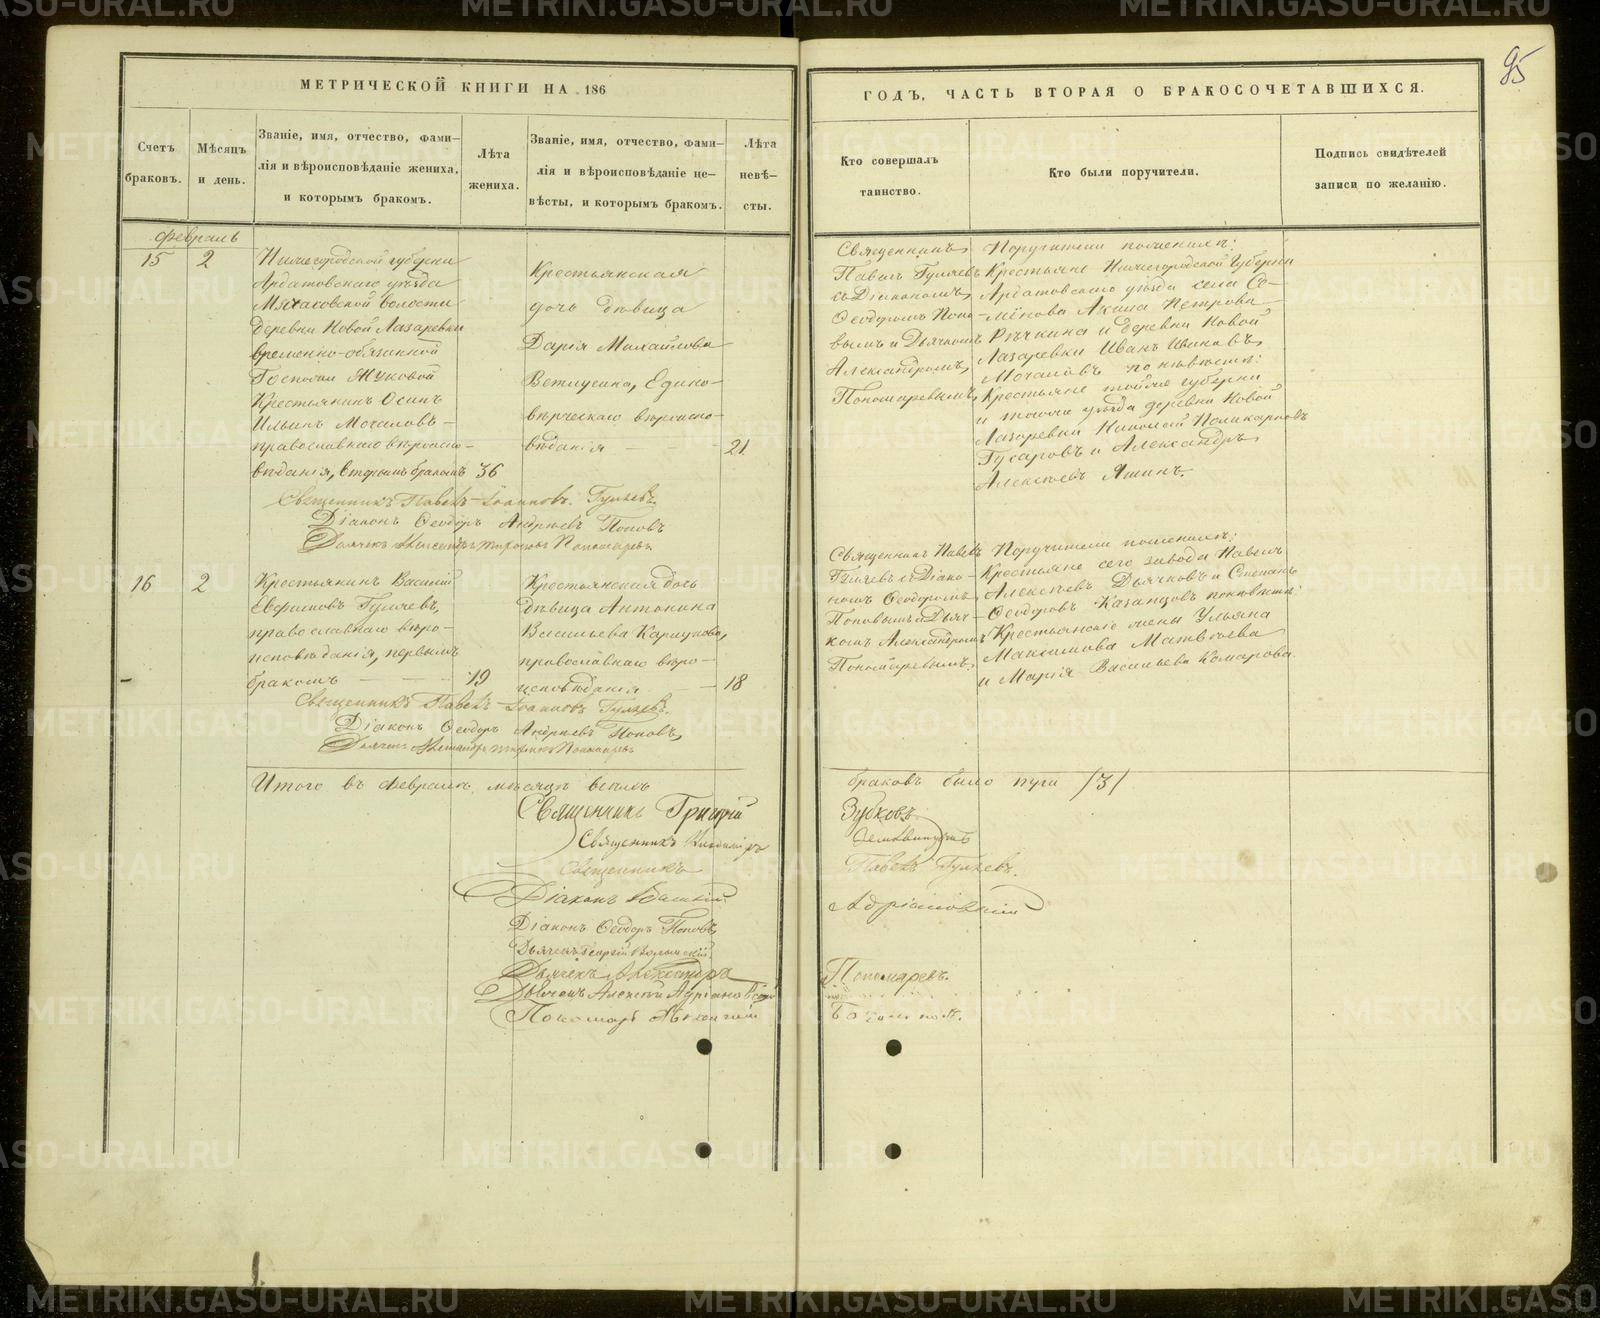 95
МЕТРИЧЕСКОЙ КНИГИ НА 186
ГОДЪ, ЧАСТЬ ВТОРАЯ О БРАКОСОЧЕТАВШИХСЯ.
Счетъ браковъ.
Мѣсяцъ и день.
Званіе, имя, отчество, фами-
лія и вѣроисповѣданіе жениха,
и которымъ бракомъ.
Лѣта жениха.
Званіе, имя, отчество, фами-
лія и вѣроисповѣданіе не-
вѣсты, и которымъ бракомъ.
Лѣта невѣ-
сты.
Кто совершалъ
таинство.
Кто были поручители.
Подпись свидѣтелей
записи по желанію.
Февраль
15
2
Нижегородской губерніи
Ардатовскаго уѣзда
волости
деревни Новой Лазаревки
временно-обязанной
Госпожи Жуковой
Крестьянинъ Осипъ
Ильинъ Мочаловъ
православнаго вѣроиспо-
вѣданія, вторымъ бракомъ
36
Крестьянская
дочь дѣвица
Дарія Михайлова
Ветлугина, Едино-
вѣрческаго вѣроиспо-
вѣданія
21
Священникъ
Павелъ Гуляевъ
съ Діакономъ
Ѳеодоромъ Попо-
вымъ и Дьячкомъ
Александромъ
Пономаревымъ
Поручители по женихѣ:
Крестьяне Нижегородской Губерніи
Ардатовскаго уѣзда села Се-
Петрова
Рѣчкина и деревни Новой
Лазаревки Иванъ Ивановъ
Мочаловъ по невѣстѣ:
Крестьяне тойже губерніи
и тогоже уѣзда деревни Новой
Лазаревки Николай Поликарповъ
Гусаровъ и Александръ
Алексѣевъ Яшинъ.
Священникъ Павелъ Іоанновъ Гуляевъ.
Діаконъ Ѳеодоръ Андреевъ Поповъ
Дьячекъ Александръ Пономаревъ
16
2
Крестьянинъ Василій
Евфимовъ Гуляевъ,
православнаго вѣро-
исповѣданія, первымъ
бракомъ
19
Крестьянская дочь
дѣвица Антонина
Васильева
православнаго вѣро-
исповѣданія
18
Священникъ Павелъ
Гуляевъ съ Діако-
номъ Ѳеодоромъ
Поповымъ и Дьяч-
комъ Александромъ
Пономаревымъ
Поручители по женихѣ:
Крестьяне сего завода Павелъ
Алексѣевъ Дьячковъ и Степанъ
Ѳеодоровъ Казанцовъ по невѣстѣ:
Крестьянскіе жены Ульяна
Максимова Матвѣева
и Марія Васильева Комарова
Священникъ Павелъ Іоанновъ Гуляевъ.
Діаконъ Ѳеодоръ Андреевъ Поповъ
Дьячекъ Александръ Пономаревъ
Итого въ Февралѣ мѣсяцѣ всѣхъ
браковъ было
Священникъ Григорій
Зубковъ
Священникъ
Священникъ
Павелъ Гуляевъ.
Діаконъ Василій
Адріановскій
Діаконъ Ѳеодоръ Поповъ
Дьячекъ Георгій
Дьячекъ Александръ
Пономаревъ.
Дьячекъ Алексѣй Адріановскій
Пономарь
METRIKI.GASO-URAL.RU